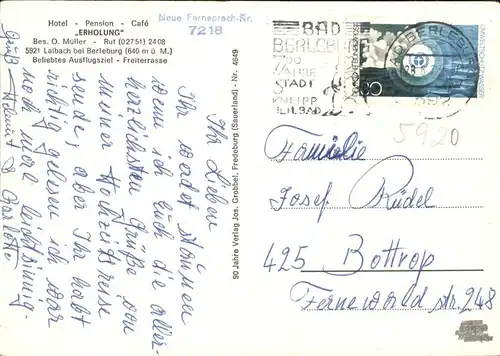 Hotel - Pension - Café
"ERHOLUNG"
Bes. O. Müller - Ruf (02751) 2408
5921 Laibach bei Berleburg (640 m ü M.)
Beliebtes Ausflugsziel - Freiterrasse
Neue Fernsprech-Nr.
7218
Ihr Lieben
Ihr werdet staunen
wenn ich Euch die aller-
herzlichsten Grüße von
meiner Hochzeitsreise
sende, aber Ihr habt
richtig gelesen ich war
noch mal leichtsinnig.
Gruß Helmut & Charlotte
90 Jahre Verlag Jos. Grobbel, Fredeburg (Sauerland) - Nr. 4649
BAD
BERLEBURG
700
JAHRE
STADT
KNEIPP
HEILBAD
BAD BERLEBURG
592
5920
Familie
Josef Rüdel
425 Bottrop
Fernewaldstr. 248